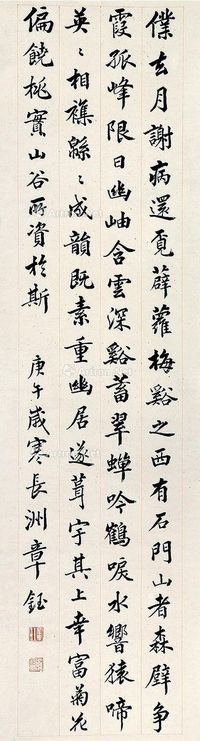 僕去月謝病還覓薜蘿梅谿之西有石門山者森壁爭
霞孤峰限日幽岫含雲深谿蓄翠蟬吟鶴唳水響猿啼
英〻相襍緜〻成韻既素重幽居遂葺宇其上幸富菊花
偏饒桃實山谷所資於斯
庚午歲寒長洲章鈺